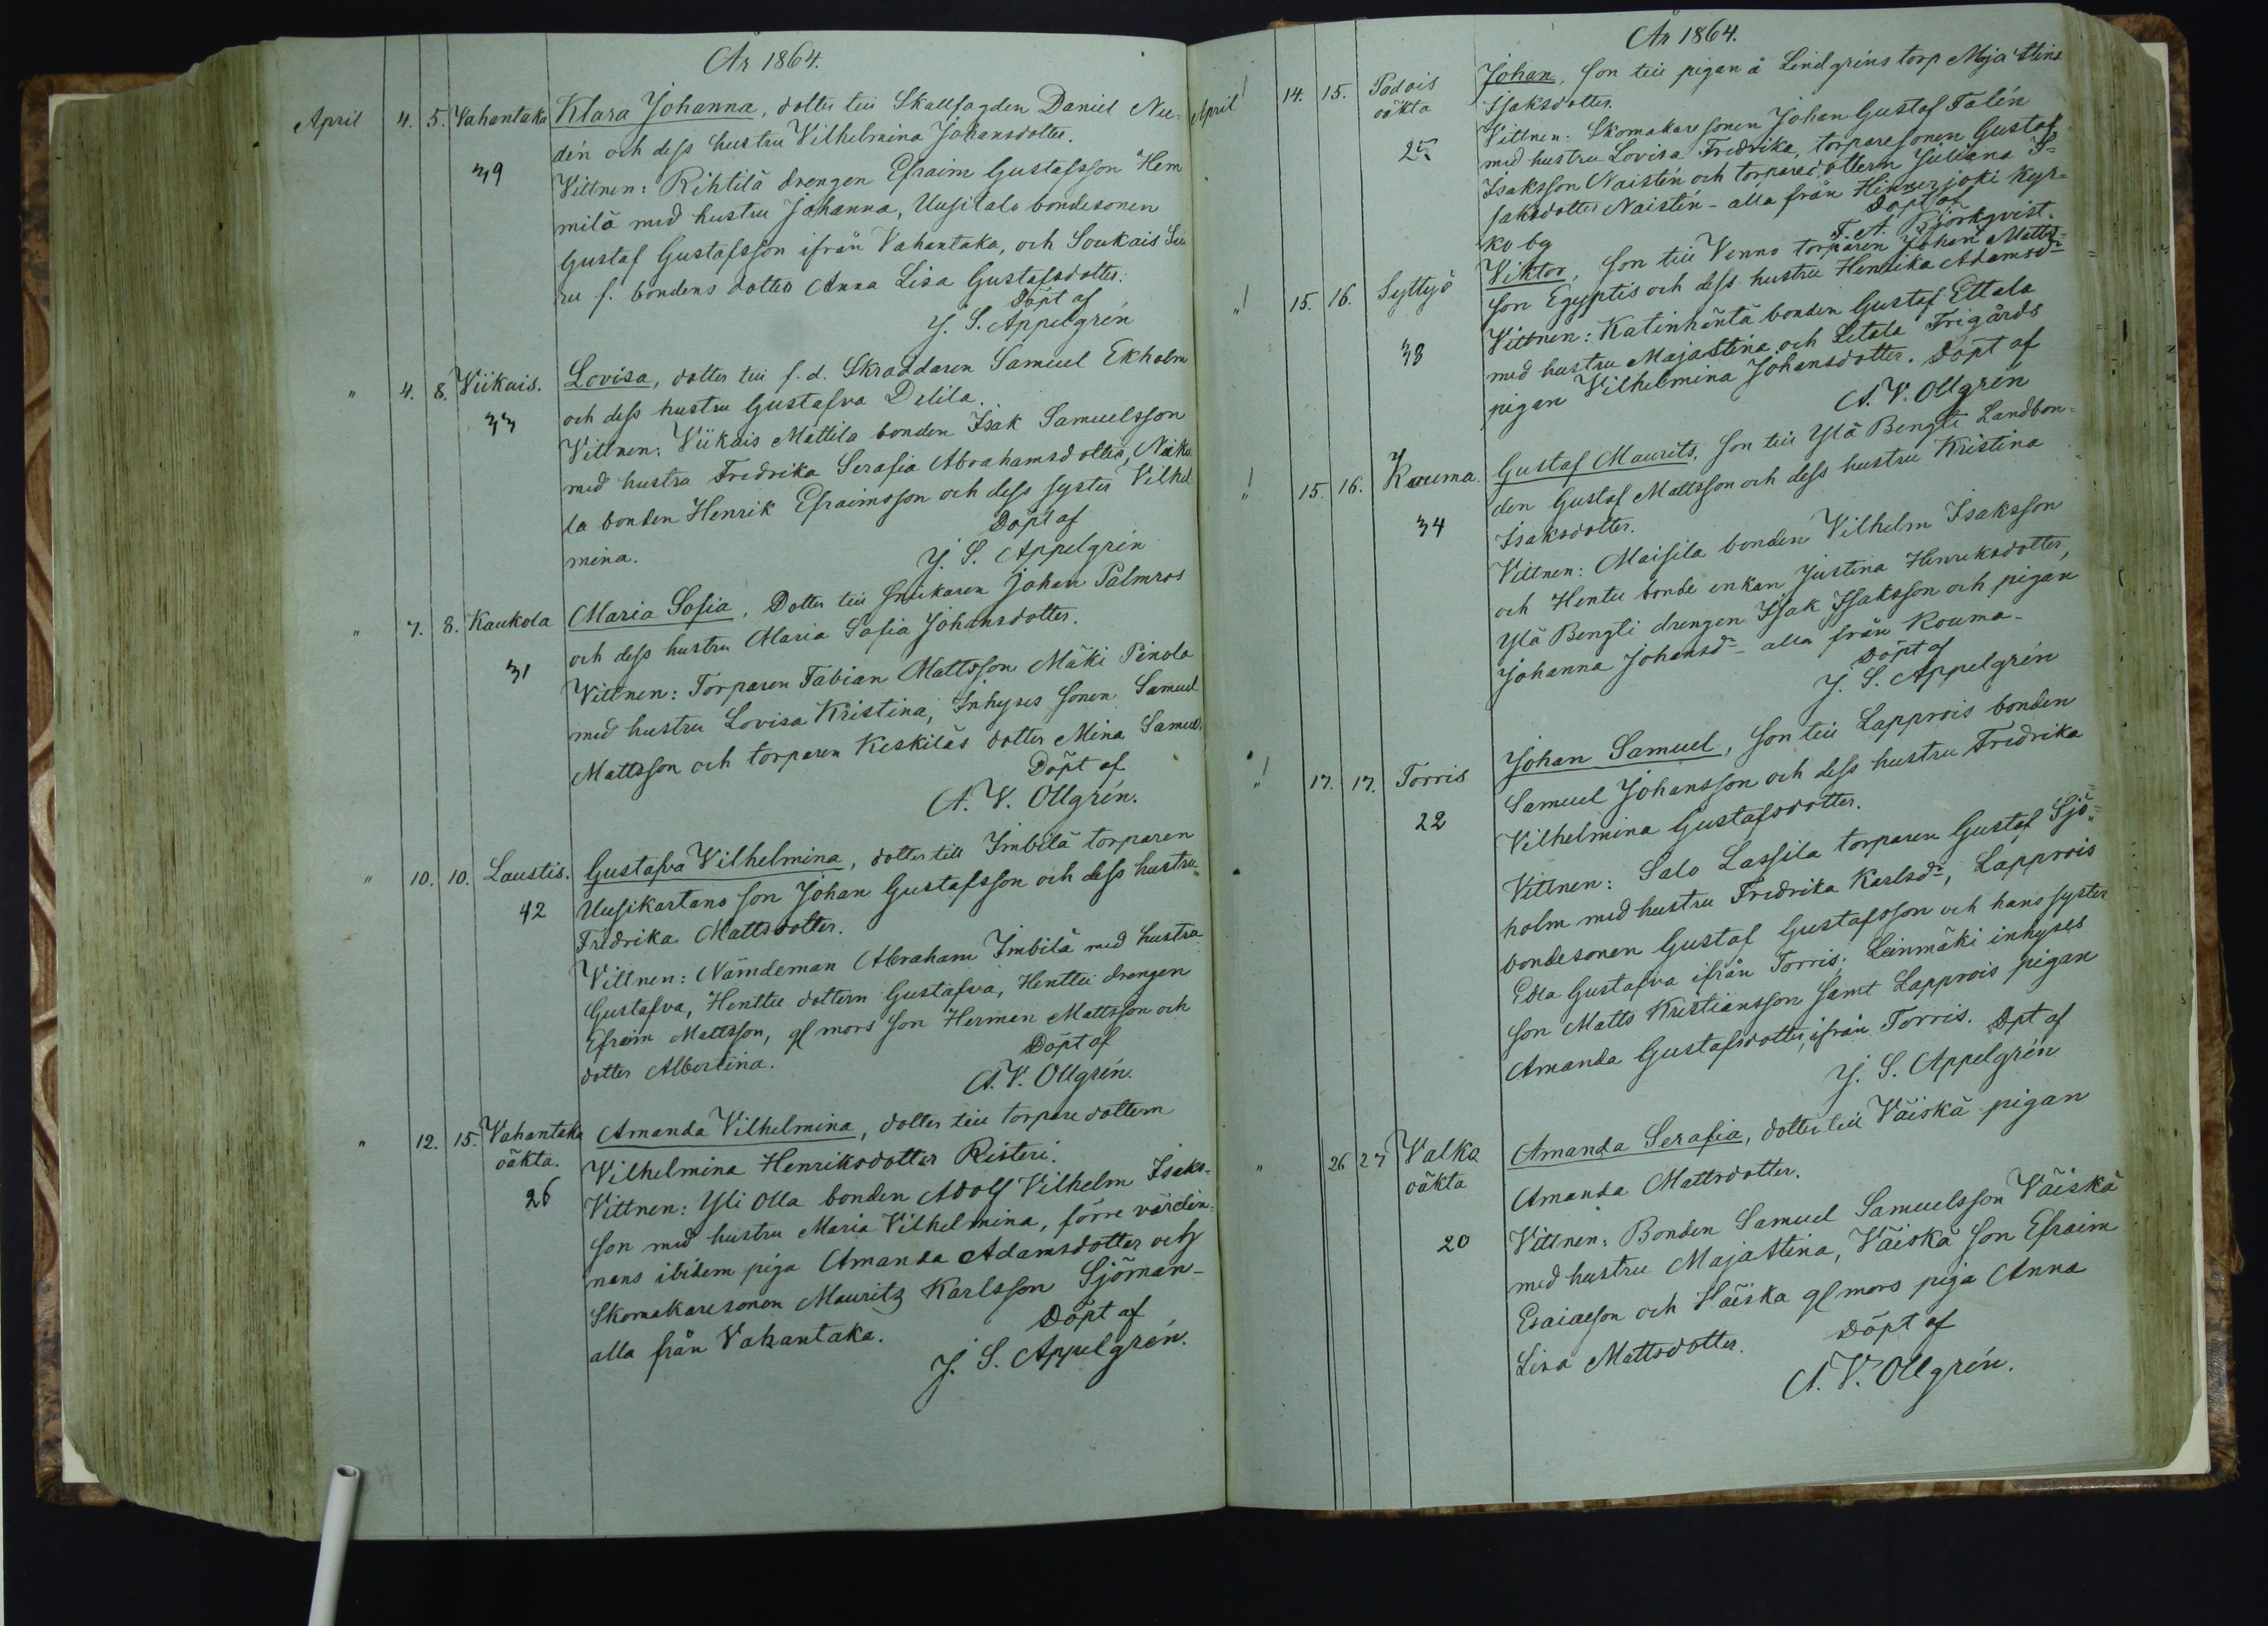 År 1864.
April 4. 5. Vahantaka Klara Johanna, dotter till Skallfogden Daniel Nu-
39 dén och dess hustru Vilhelmina Johansdotter.
Vittnen: Rihtilä drengen Efraim Gustafsson Hem
milä med hustru Johanna, Uusitalo bondesonen
Gustaf Gustafsson ifrån Vahantaka, och Soukais
ru f. bondens dotter Anna Lisa Gustafsdotter.
Döpt af
J. S. Appelgrén
" 4. 8. Viikais. Lovisa, dotter till f.d. Skraddaren Samuel Ekholm
33 och dess hustru Gustafva Delila.
Vittnen: Viikais Mattila bonden Isak Samuelsson
med hustru Fredrika Serafia Abrahamsdotter,
la bonden Henrik Efraimsson och dess syster Vilhel
mina. Döpt af
J. S. Appelgrén
" 7. 8. Kaukola Maria Sofia, Dotter till snickaren Johan Palmros
31 och dess hustru Maria Sofia Johansdotter.
Vittnen: Torparen Fabian Mattsson Mäki Penola
med hustru Lovisa Kristina, Inhyses sonen Samuel
Mattsson och torparen Keskiläs dotter Mina Samuel.
Döpt af
A. V. Ollgrén.
" 10. 10. Laustis. Gustafva Vilhelmina, dotter till Imbilä torparen
42 Uusikartano son Johan Gustafsson och dess hustru
Fredrika Mattsdotter.
Vittnen: Nämdeman Abraham Imbilä med hustru
Gustafva, Henttu dottern Gustafva, Henttu drengen
Efraim Mattsson, gl mors son Herman Mattsson och
dotter Albertina. Döpt af
A. V. Ollgrén.
" 12. 15. Vahantaka Amanda Vilhelmina, dotter till torpare dottern
oäkta. Vilhelmina Henriksdotter Risteri.
26 Vittnen: Yli Olla bonden Adolf Vilhelm Isaks-
son med hustru Maria Vilhelmina, förre värdin-
nans ibidem piga Amanda Adamsdotter och
Skomakaresonen Mauritz Karlsson Sjöman-
alla från Vahantaka. Döpt af
J. S. Appelgrén.
År 1864.
April 14. 15. Padois Johan, son till pigan å Lindgréns torp Maja Stina
oäkta Isaksdotter.
25 Vittnen: Skomakaresonen Johan Gustaf Falén
med hustru Lovisa Fredrika, torparesonen Gustaf
Isaksson Naistén och torparedottern Juliana I-
saksdotter Naistén - alla från Hinnerjoki Kyr-
ko bg Döpt af
F. A. Björkqvist.
" 15. 16. Syttyö Viktor, Son till Venno torparen Johan Matts-
38 son Egyptis och dess hustru Henrika Adamsdr
Vittnen: Katinhäntä bonden Gustaf Ettala
med hustru Majastina och Letala Frigårds
pigan Vilhelmina Johansdotter. Döpt af
A. V. Ollgrén
" 15. 16. Kouma. Gustaf Maurits, Son till Ylä Bengti Landbon-
34 den Gustaf Mattsson och dess hustru Kristina
Isaksdotter.
Vittnen: Maisila bonden Vilhelm Isaksson
och Hentu bonde enkan Justina Henriksdotter,
Ylä Bengti drengen Isak Isaksson och pigan
Johanna Johansdr - alla från Kouma.
Döpt af
J. S. Appelgrén
" 17. 17. Torris Johan Samuel, Son till Lapprois bonden
22 Samuel Johansson och dess hustru Fredrika
Vilhelmina Gustafsdotter.
Vittnen: Salo Lassila torparen Gustaf Sjö-
holm med hustru Fredrika Karlsdr, Lapprois
bondesonen Gustaf Gustafsson och hans syster
Edla Gustafva ifrån Torris, Leinmäki inhyses
son Matts Kristiansson samt Lapprois pigan
Amanda Gustafsdotter, ifrån Torris. Dpt af
J. S. Appelgrén
" 26 27 Valko Amanda Serafia, dotter till Väiskä pigan
oäkta Amanda Mattsdotter.
20 Vittnen: Bonden Samuel Samuelsson Väiskä
med hustru Majastina, Väiskä son Efraim
Esaiasson och Väiska gl mors piga Anna
Lisa Mattsdotter. Döpt af
A. V. Ollgrén.